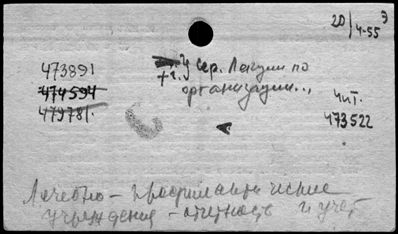 20/4-55 э
473891
474594
479781.
+ г. У сер. Лекции по
организации...
Чит.
473522
Лечебно-профилактические
учреждения - отчетность и учет